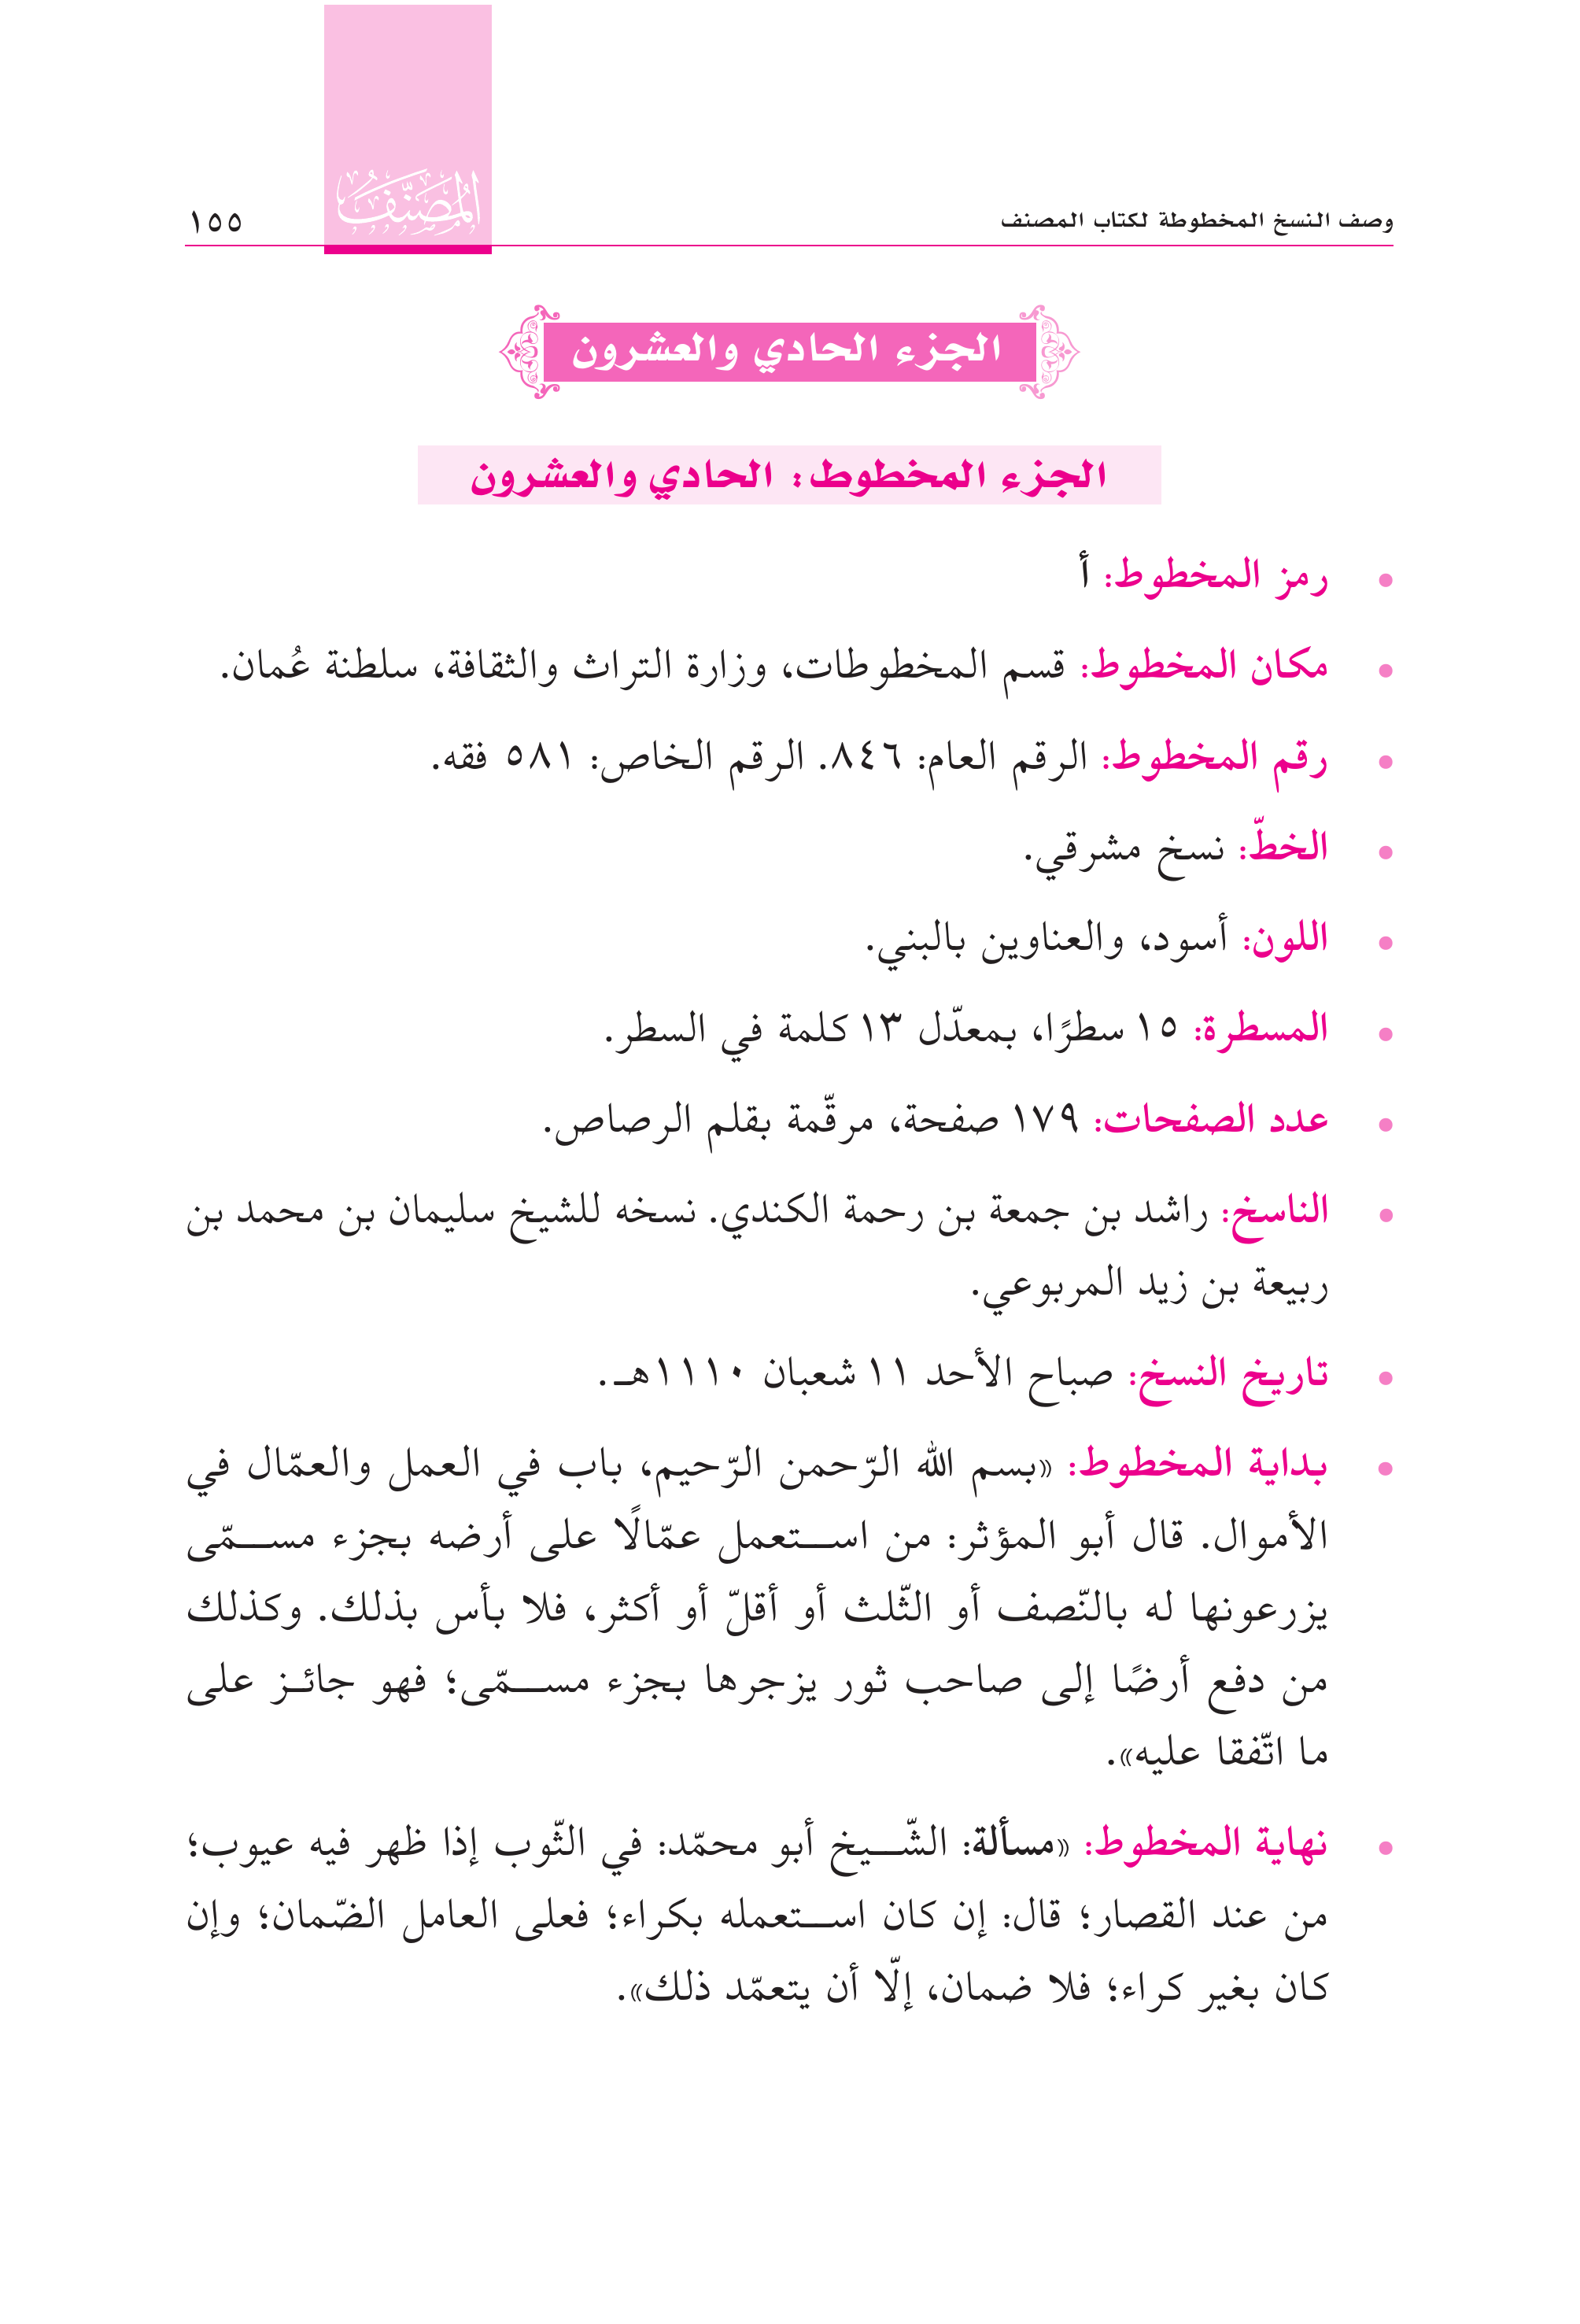 وصف النسخ المخطوطة لكتاب المصنف
المُصَنَّفُ
١٥٥
الجزء الحادي والعشرون
الجزء المخطوط: الحادي والعشرون
• رمز المخطوط: أ
• مكان المخطوط: قسم المخطوطات، وزارة التراث والثقافة، سلطنة عُمان.
• رقم المخطوط: الرقم العام: ٨٤٦. الرقم الخاص: ٥٨١ فقه.
• الخطّ: نسخ مشرقي.
• اللون: أسود، والعناوين بالبني.
• المسطرة: ١٥ سطرًا، بمعدّل ١٣ كلمة في السطر.
• عدد الصفحات: ١٧٩ صفحة، مرقّمة بقلم الرصاص.
• الناسخ: راشد بن جمعة بن رحمة الكندي. نسخه للشيخ سليمان بن محمد بن
ربيعة بن زيد المربوعي.
• تاريخ النسخ: صباح الأحد ١١ شعبان ١١١٠هـ.
• بداية المخطوط: «بسم الله الرّحمن الرّحيم، باب في العمل والعمّال في
الأموال. قال أبو المؤثر: من استعمل عمّالًا على أرضه بجزء مسمّى
يزرعونها له بالنّصف أو الثّلث أو أقلّ أو أكثر، فلا بأس بذلك. وكذلك
من دفع أرضًا إلى صاحب ثور يزجرها بجزء مسمّى؛ فهو جائز على
ما اتّفقا عليه».
• نهاية المخطوط: «مسألة: الشّيخ أبو محمّد: في الثّوب إذا ظهر فيه عيوب؛
من عند القصار؛ قال: إن كان استعمله بكراء؛ فعلى العامل الضّمان؛ وإن
كان بغير كراء؛ فلا ضمان، إلّا أن يتعمّد ذلك».